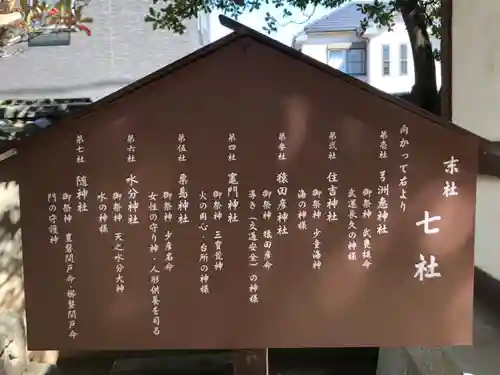 末社 七社
向かって右より
第壱社 弓洲恵神社
御祭神 武更雄命
武運長久の神様
第弐社 住吉神社
御祭神 少童海神
海の神様
第参社 猿田彦神社
御祭神 猿田彦命
導き(交通安全)の神様
第四社 竃門神社
御祭神 三寳荒神
火の用心・台所の神様
第伍社 粟島神社
御祭神 少彦名命
女性の守り神・人形供養を司る
第六社 水分神社
御祭神 天之水分大神
水の神様
第七社 随神社
御祭神 豊磐間戸命・櫛磐間戸命
門の守護神